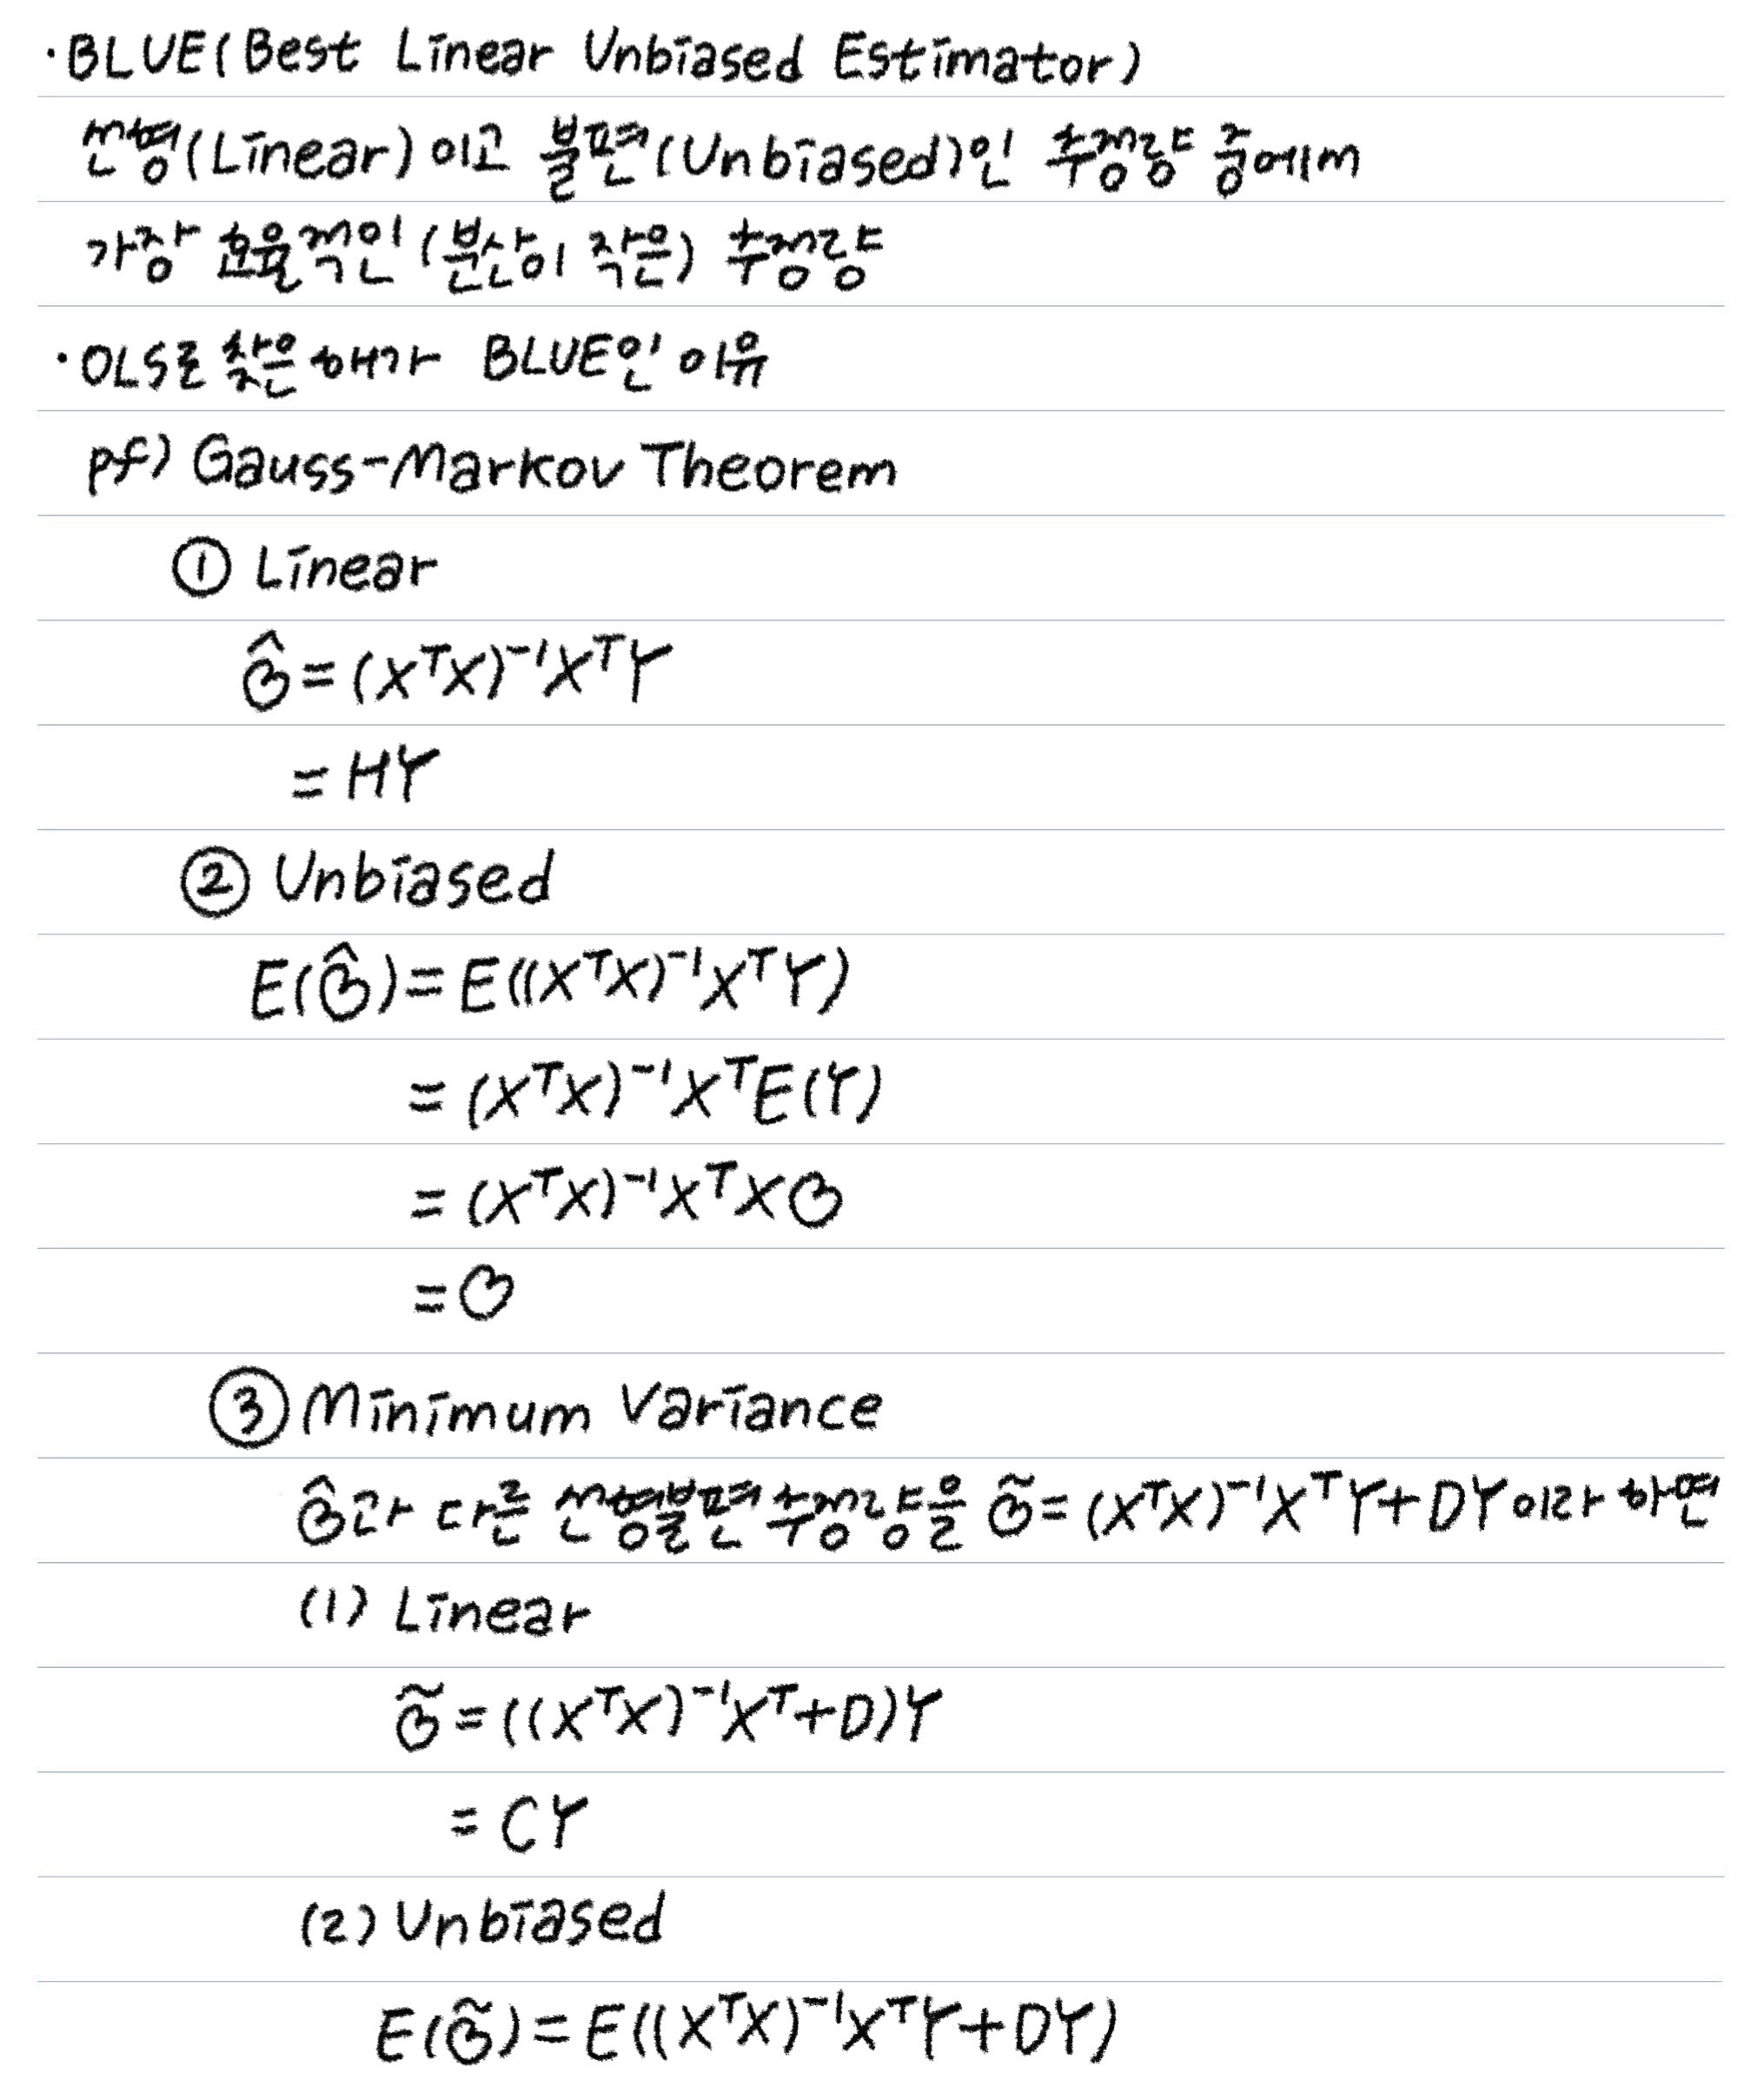 ·BLUE(Best Linear Unbiased Estimator)
선형(Linear)이고 불편(Unbiased)인 추정량 중에서
가장 효율적인(분산이 작은) 추정량
·OLS로 찾은 해가 BLUE인 이유
pf) Gauss-Markov Theorem
① Linear
β̂ = (XᵀX)⁻¹XᵀY
= HY
② Unbiased
E(β̂) = E((XᵀX)⁻¹XᵀY)
= (XᵀX)⁻¹XᵀE(Y)
= (XᵀX)⁻¹XᵀXβ
= β
③ Minimum Variance
β̂과 다른 선형불편추정량을 β̃ = (XᵀX)⁻¹XᵀY+DY이라 하면
(1) Linear
β̃ = ((XᵀX)⁻¹Xᵀ+D)Y
= CY
(2) Unbiased
E(β̃) = E((XᵀX)⁻¹XᵀY+DY)